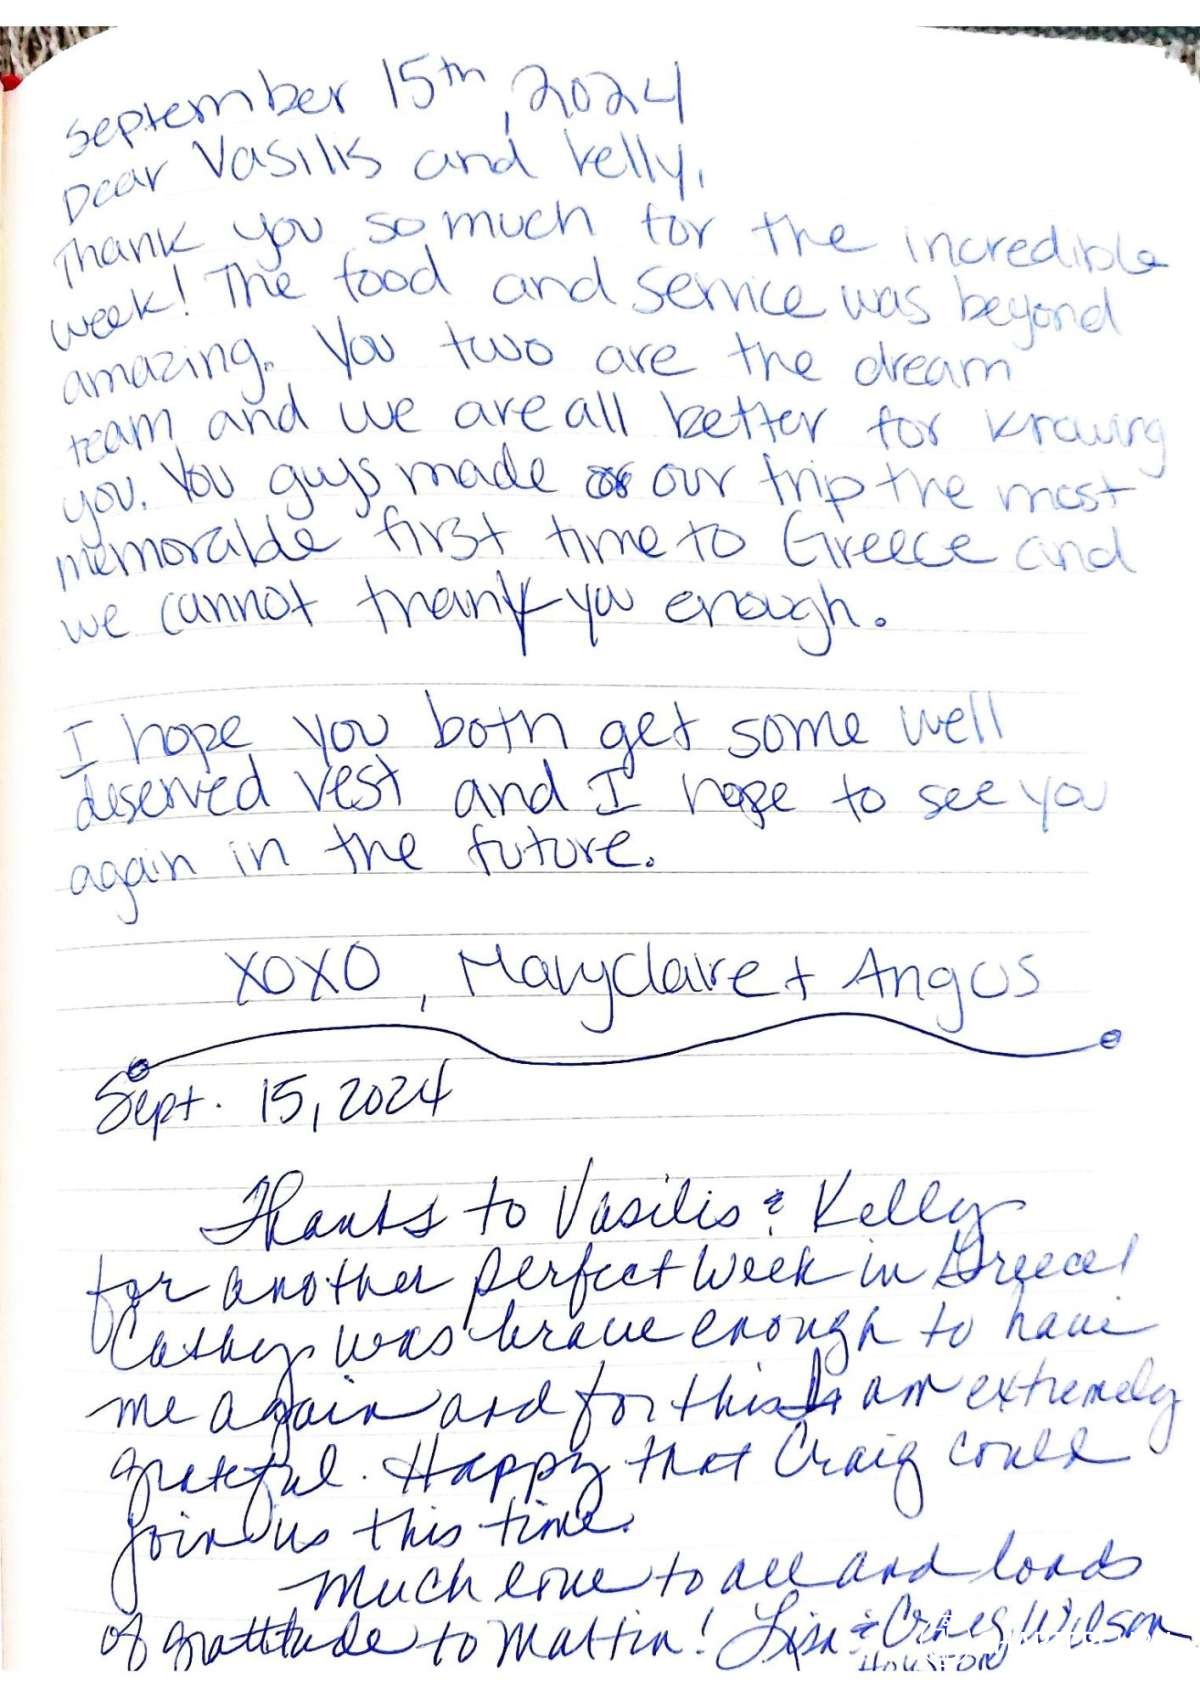 September 15th, 2024
Dear Vasilis and Kelly,
Thank you so much for the incredible
week! The food and service was beyond
amazing. You two are the dream
team and we are all better for knowing
you. You guys made our trip the most
memorable first time to Greece and
we cannot thank you enough.
I hope you both get some well
deserved rest and I hope to see you
again in the future.
XOXO, Maryclaire + Angus
Sept. 15, 2024
Thanks to Vasilis & Kelly
for another perfect week in Greece!
Cathy was brave enough to have
me again and for this I am extremely
grateful. Happy that Craig could
join us this time.
Much love to all and loads
of gratitude to Martin! Lisa & Craig Wilson
Houston